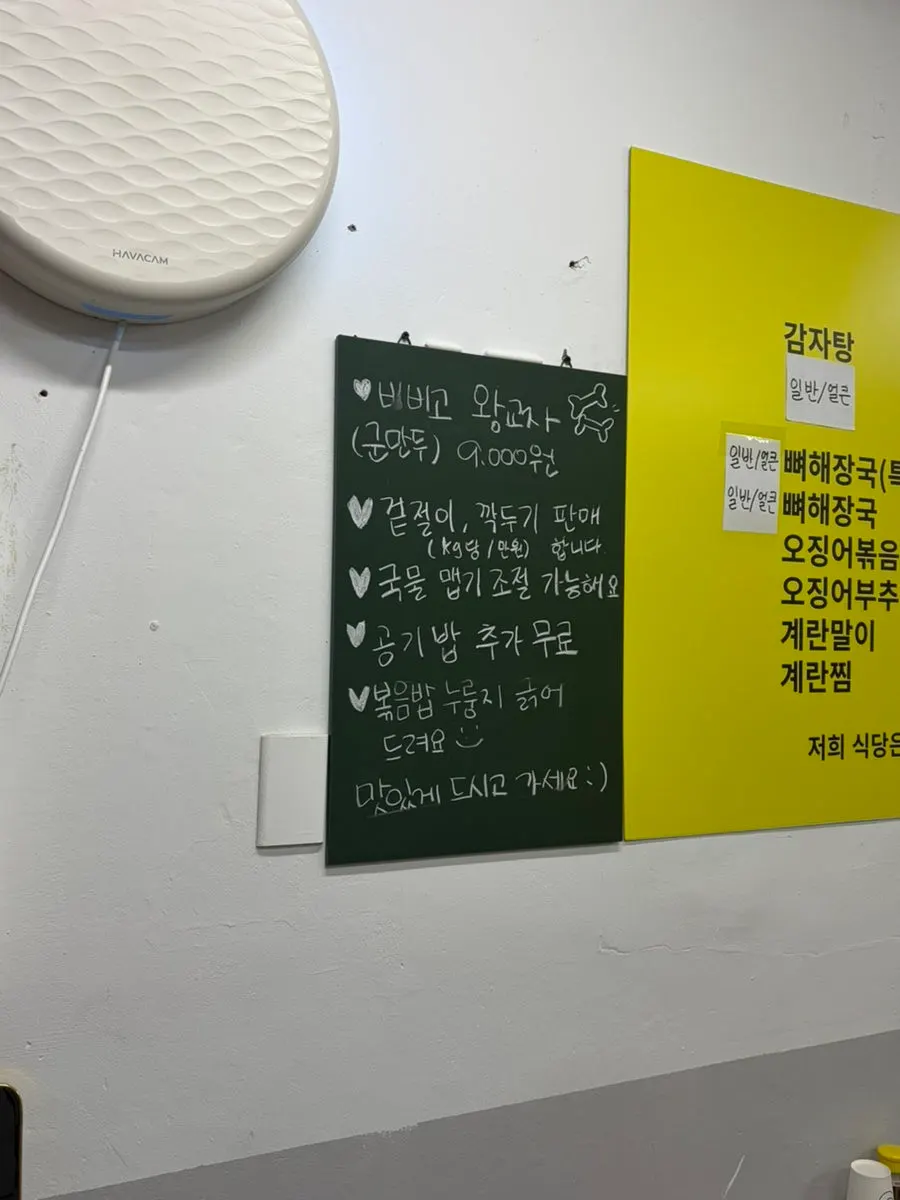 HAVACAM
비비고 왕교자
(군만두) 9.000원
겉절이, 깍두기 판매
(kg당/만원) 합니다.
국물 맵기 조절 가능해요
공기밥 추가 무료
볶음밥 누룽지 긁어
드려요
맛있게 드시고 가세요:)
감자탕
일반/얼큰
일반/얼큰 뼈해장국(특
일반/얼큰 뼈해장국
오징어볶음
오징어부추
계란말이
계란찜
저희 식당은